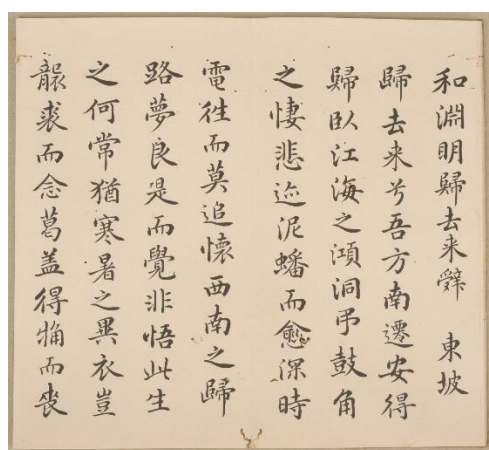 和淵明歸去来辭 東坡
歸去来兮吾方南遷安得
歸臥江海之澒洞弔鼓角
之悽悲迹泥蟠而愈深時
電往而莫追懷西南之歸
路夢良是而覺非悟此生
之何常猶寒暑之異衣豈
襲裘而念葛盖得觕而喪